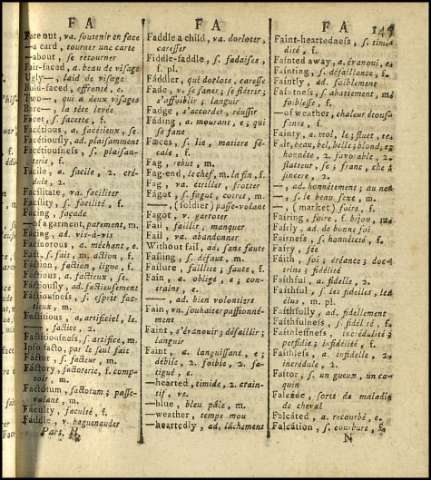 F A
Face out, va. soutenir en face
—a card, tourner une carte
—about, se retourner
Fair-faced, a. beau de visage
Ugly—, laid de visage
Bold-faced, effronté, e.
Two—, qui a deux visages
Bare—, la tête levée
Facet, s. facette, f.
Facétious, a. facétieux, se.
Facétiously, ad. plaisamment
Facétiousness, s. plaisanterie, f.
Fácile, a. facile, 2. crédule, 2.
Facílitate, va. faciliter
Facílity, s. facilité, f.
Fácing, façade
—of a garment, parement, m.
Fácing, ad. vis-à-vis
Facinórous, a. méchant, e.
Fact, s. fait, m. action, f.
Fáction, faction, ligue, f.
Fáctious, a. factieux, se.
Fáctiously, ad. factieusement
Fáctiousness, s. esprit factieux, m.
Factítious, a. artificiel, le.
—, factice, 2.
Factítiousness, s. artifice, m.
Ipso facto, par le seul fait
Fáctor, s. facteur, m.
Fáctory, factorerie, f. comptoir, m.
Factótum, factotum; passe-volant, m.
Fáculty, faculté, f.
Fáddle, v. baguenauder
Part. II.
F A
Faddle a child, va. dorloter, caresser
Fiddle-faddle, s. fadaises, f. pl.
Fáddler, qui dorlote, caresse
Fade, v. se faner, se flétrir; s'affoiblir; languir
Fadge, s'accorder, réussir
Fáding, a. mourant, e; qui se fane
Fæces, s. lie, matiere fécale, f.
Fag, rebut, m.
Fag-end, le chef, m. la fin, f.
Fag, va. étriller, frotter
Fágot, s. fagot, cotret, m.
—, (soldier) passe-volant
Fágot, v. garroter
Fail, faillir, manquer
Fail, va. abandonner
Without fail, ad. sans faute
Failing, s. défaut, m.
Failure, faillite; faute, f.
Fain, a. obligé, e; contraint, e.
—, ad. bien volontiers
Fain, vn. souhaiter passionnément
Faint, s'évanouir; défaillir; languir
Faint, a. languissant, e; débile, 2. foible, 2. fatigué, e.
—hearted, timide, 2. craintif, ve.
—blue, bleu pâle, m.
—weather, temps mou
—heartedly, ad. lâchement
F A
Faint-heartedness, s. timidité, f.
Fainted away, a. évanoui, e.
Fainting, s. défaillance, f.
Faintly, ad. foiblement
Faintness, s. abattement, m. foiblesse, f.
—of weather, chaleur étouffante, f.
Fainty, a. mol, le; fluet, te.
Fair, beau, bel, belle; blond, e; honnête, 2. favorable, 2. flatteur, se; franc, che; sincere, 2.
—, ad. honnêtement; au net
—, s. le beau sexe, m.
—, (market) foire, f.
Fairing, foire, f. bijou, m.
Fairly, ad. de bonne foi
Fairness, s. honnêteté, f.
Fairy, fée
Faith, foi; créance; doctrine; fidélité
Faithful, a. fidelle, 2.
Faithful, s. les fidelles, les élus, m. pl.
Faithfully, ad. fidellement
Faithfulness, s. fidélité, f.
Faithlessness, incrédulité; perfidie; infidélité, f.
Faithless, a. infidelle, 2. incrédule, 2.
Faitor, s. un gueux, un coquin
Falcade, sorte de maladie de cheval
Falcáted, a. recourbé, e.
Falcátion, s. courbure, f.
N